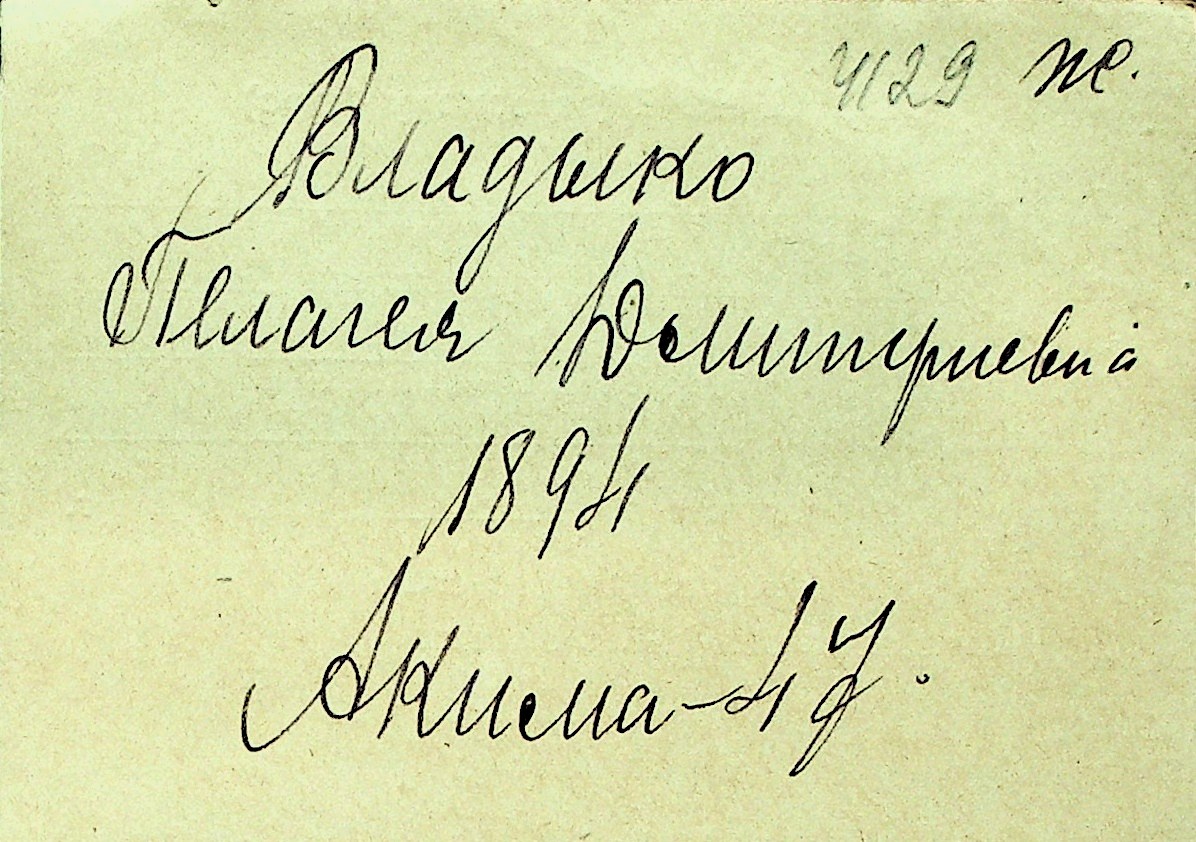 4129 же.
Владыко
Пелагея Дмитриевна
1894
Акима-47.